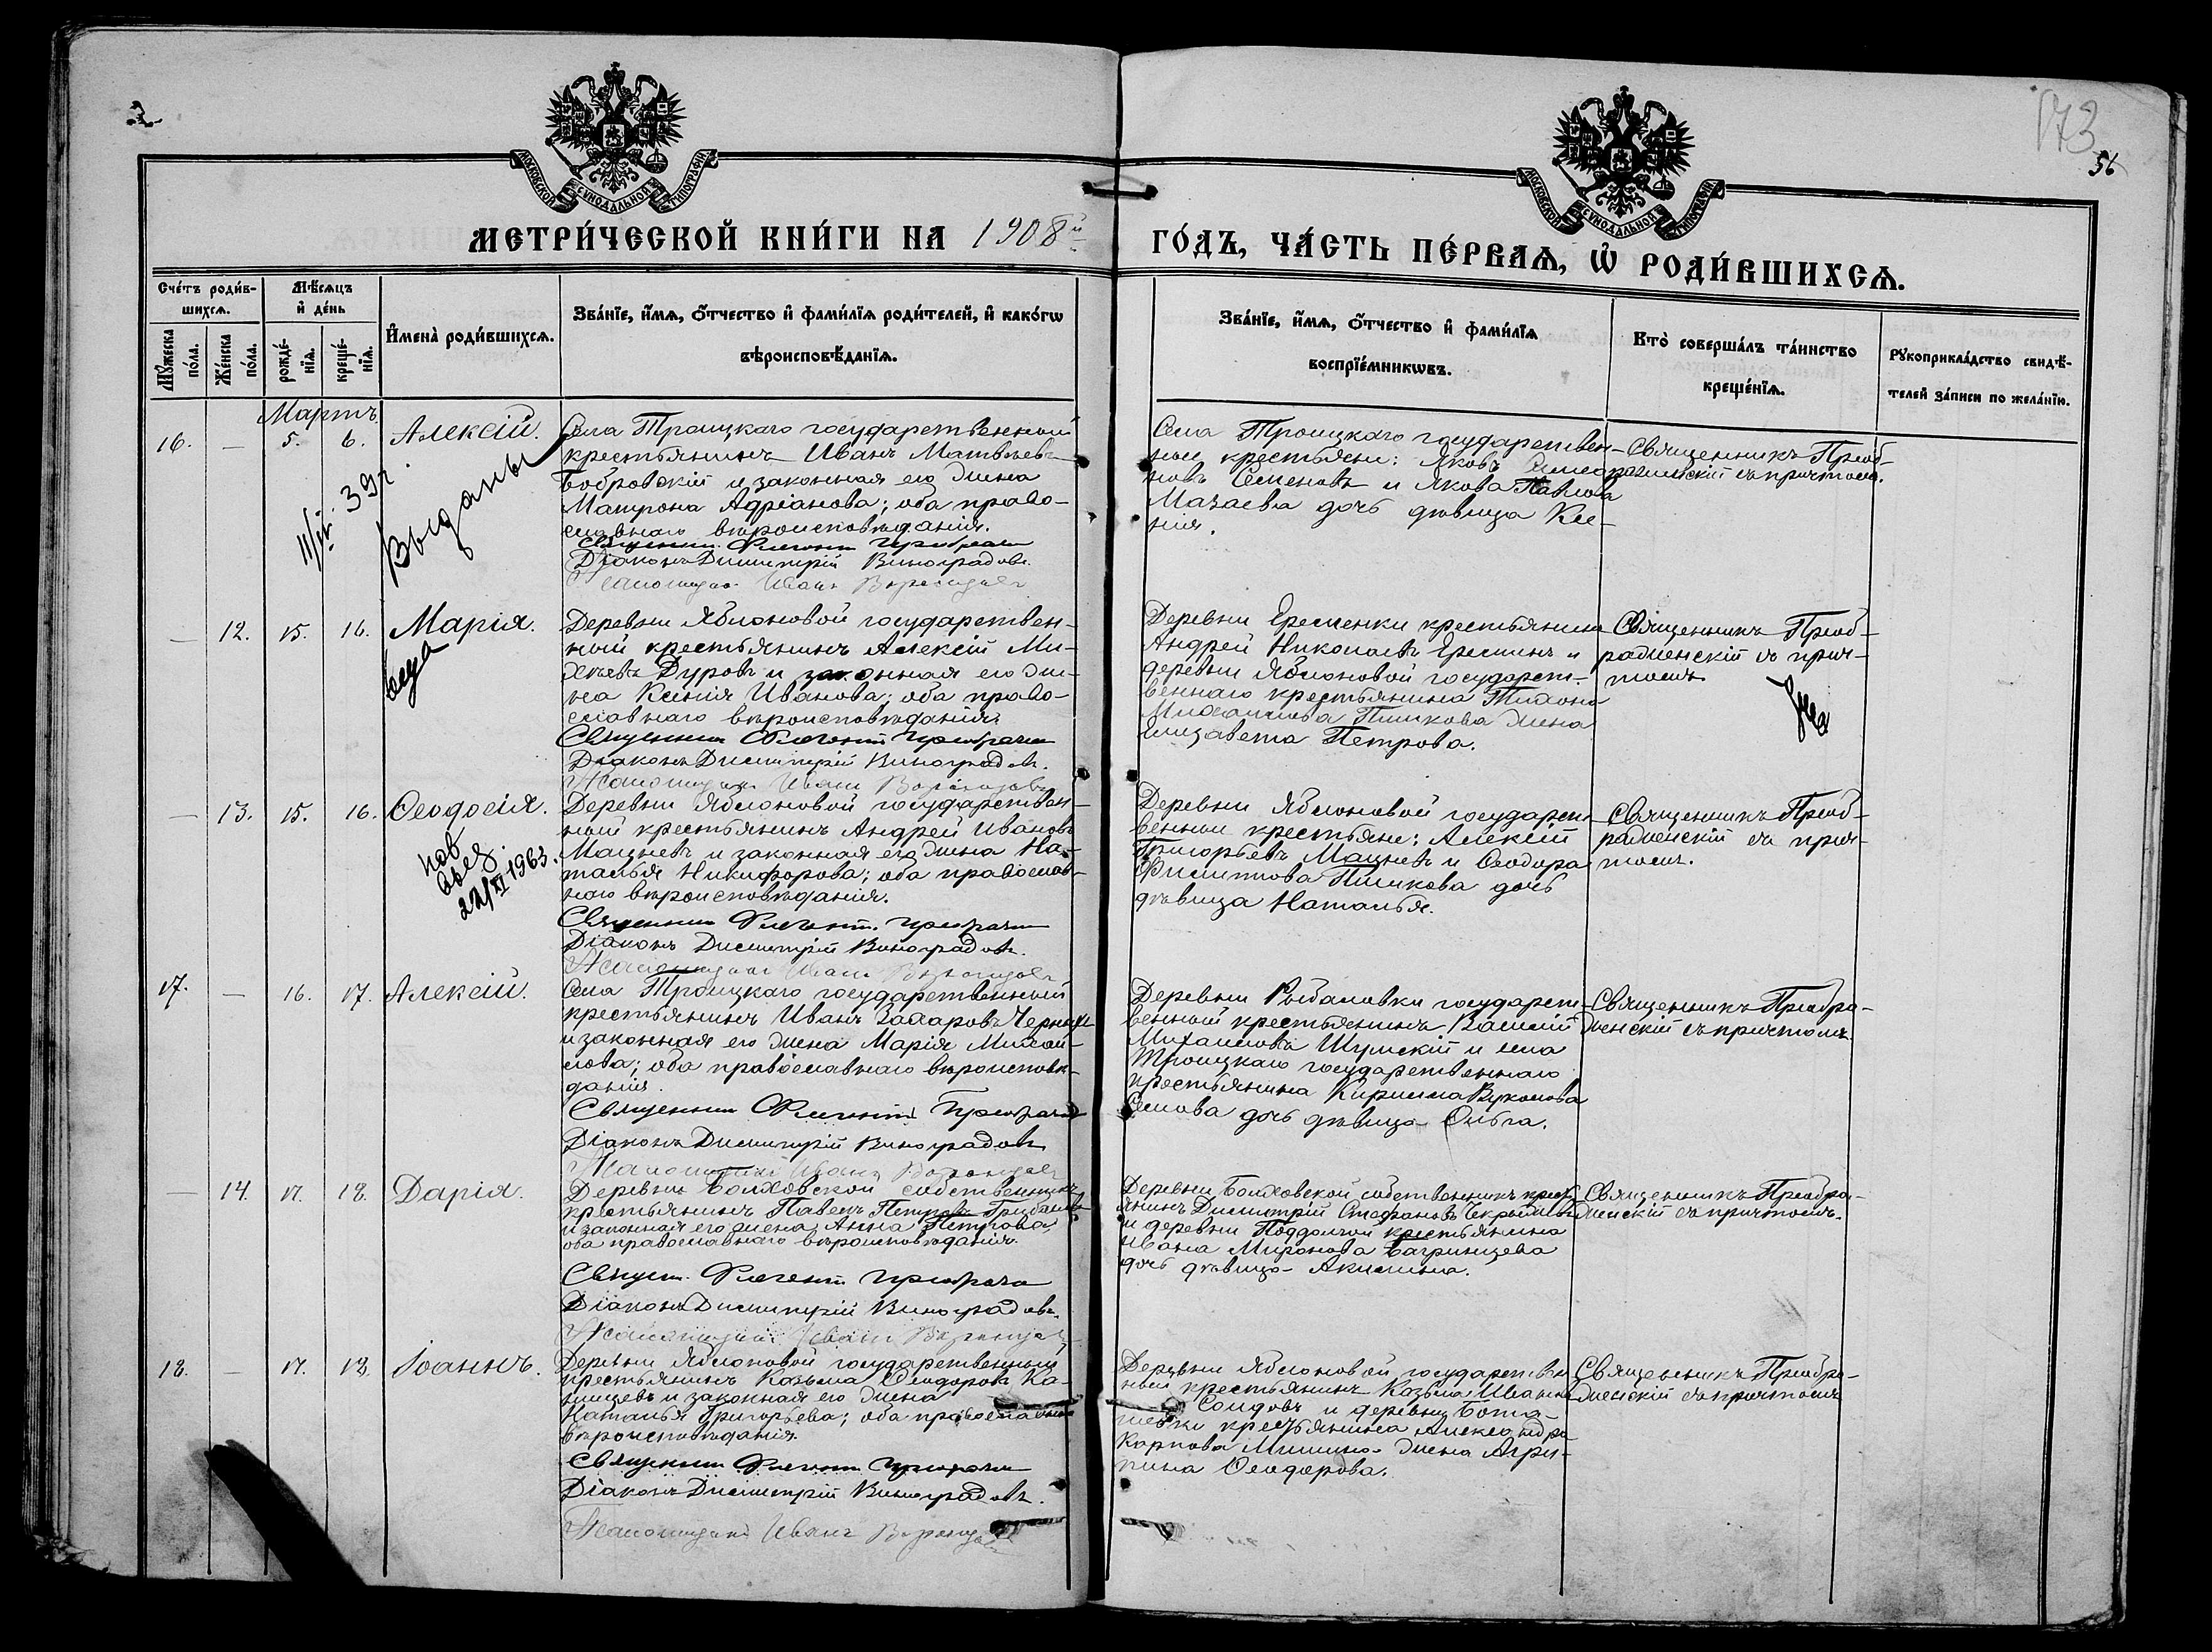 173
56
МОСКОВСКОЙ СѴНОДАЛЬНОЙ ТИПОГРАФІИ
МОСКОВСКОЙ СѴНОДАЛЬНОЙ ТИПОГРАФІИ
МЕТРИ́ЧЕСКОЙ КНИ́ГИ НА 1908й
ГО́ДЪ, ЧА́СТЬ ПЕ́РВАѦ, Ѡ҆ РОДИ́ВШИХСѦ.
Сче́тъ роди́в-
шихсѧ.
Мѣ́сѧцъ
и҆ де́нь
Мꙋ́жеска
по́ла.
Же́нска
по́ла.
рожде́-
нїѧ.
креще́-
нїѧ.
И҆мена̀ роди́вшихсѧ.
Зва́нїе, и҆́мѧ, ѻ҆́тчество и҆ фами́лїѧ роди́телей, и҆ како́гѡ
вѣроисповѣ́данїѧ.
Зва́нїе, и҆́мѧ, ѻ҆́тчество и҆ фами́лїѧ
воспрїе́мникѡвъ.
Кто̀ соверша́лъ та́инство
креще́нїѧ.
Рꙋкоприкла́дство свидѣ́-
телей за́писи по жела́нїю.
Мартъ
16. — 5. 6. Алексій.
Села Троицкаго государственный
крестьянинъ Иванъ Матвѣевъ
Бобровскій и законная его жена
Матрона Адріанова; оба право-
славнаго вѣроисповѣданія.
Священникъ
Діаконъ Димитрій Виноградовъ.
Псаломщикъ Иванъ
39г.
Выданы
Села Троицкаго государствен-
ные крестьяне: Яковъ
Семеновъ и Якова Павлова
Мазаева дочь дѣвица Ксе-
нія.
Священникъ Преоб-
раженскій съ причтомъ.
— 12. 15. 16. Марія.
Деревни Яблоновой государствен-
ный крестьянинъ Алексій Ми-
хѣевъ Дуровъ и законная его же-
на Ксенія Иванова; оба право-
славнаго вѣроисповѣданія.
Священникъ
Діаконъ Димитрій Виноградовъ.
Псаломщикъ Иванъ
Деревни Еремѣнки крестьянинъ
Андрей Николаевъ Ереминъ и
деревни Яблоновой государст-
веннаго крестьянина Тихона
Михаилова Пашкова жена
Елизавета Петрова.
Священникъ Преоб-
раженскій съ прич-
томъ
— 13. 15. 16. Ѳеодосія.
пов
22/XI 1963.
Деревни Яблоновой государствен-
ный крестьянинъ Андрей Ивановъ
Мацневъ и законная его жена На-
талья Никифорова; оба православ-
наго вѣроисповѣданія.
Священникъ
Діаконъ Димитрій Виноградовъ.
Псаломщикъ Иванъ
Деревни Яблоновой государст-
венные крестьяне: Алексій
Григорьевъ Мацневъ и Ѳеодора
Филиппова дочь
дѣвица Наталья.
Священникъ Преоб-
раженскій съ прич-
томъ.
17. — 16. 17. Алексій.
Села Троицкаго государственный
крестьянинъ Иванъ Захаровъ Черныхъ
и законная его жена Марія Михаи-
лова; оба православнаго вѣроисповѣ-
данія.
Священникъ
Діаконъ Димитрій Виноградовъ
Псаломщикъ Иванъ
Деревни Рыбаловки государст-
венный крестьянинъ Василій
Михаиловъ Шумскій и села
Троицкаго государственнаго
крестьянина Кирилла Вуколова
дочь дѣвица Ольга.
Священникъ Преобра-
женскій съ причтомъ
— 14. 17. 18. Дарія.
Деревни Болховской собственникъ
крестьянинъ Павелъ Петровъ
и законная его жена Анна Петрова;
оба православнаго вѣроисповѣданія.
Діаконъ Димитрій Виноградовъ.
Псаломщикъ Иванъ
Деревни Болховской собственникъ крест-
янинъ Димитрій Стефановъ
и деревни Поддолгой крестьянина
Ивана Миронова Багринцева
дочь дѣвица Акилина.
Священникъ Преобра-
женскій съ причтомъ.
18. — 17. 18. Іоаннъ.
Деревни Яблоновой государственный
крестьянинъ Козьма Ѳеодоровъ Ка-
шищевъ и законная его жена
Наталья Григорьева; оба православнаго
вѣроисповѣданія.
Священникъ
Діаконъ Димитрій Виноградовъ.
Псаломщикъ Иванъ
Деревни Яблоновой государствен-
ный крестьянинъ Козьма Ивановъ
и деревни
крестьянина Александра
Карпова жена Агри-
пина Ѳеодорова.
Священникъ Преобра-
женскій съ причтомъ